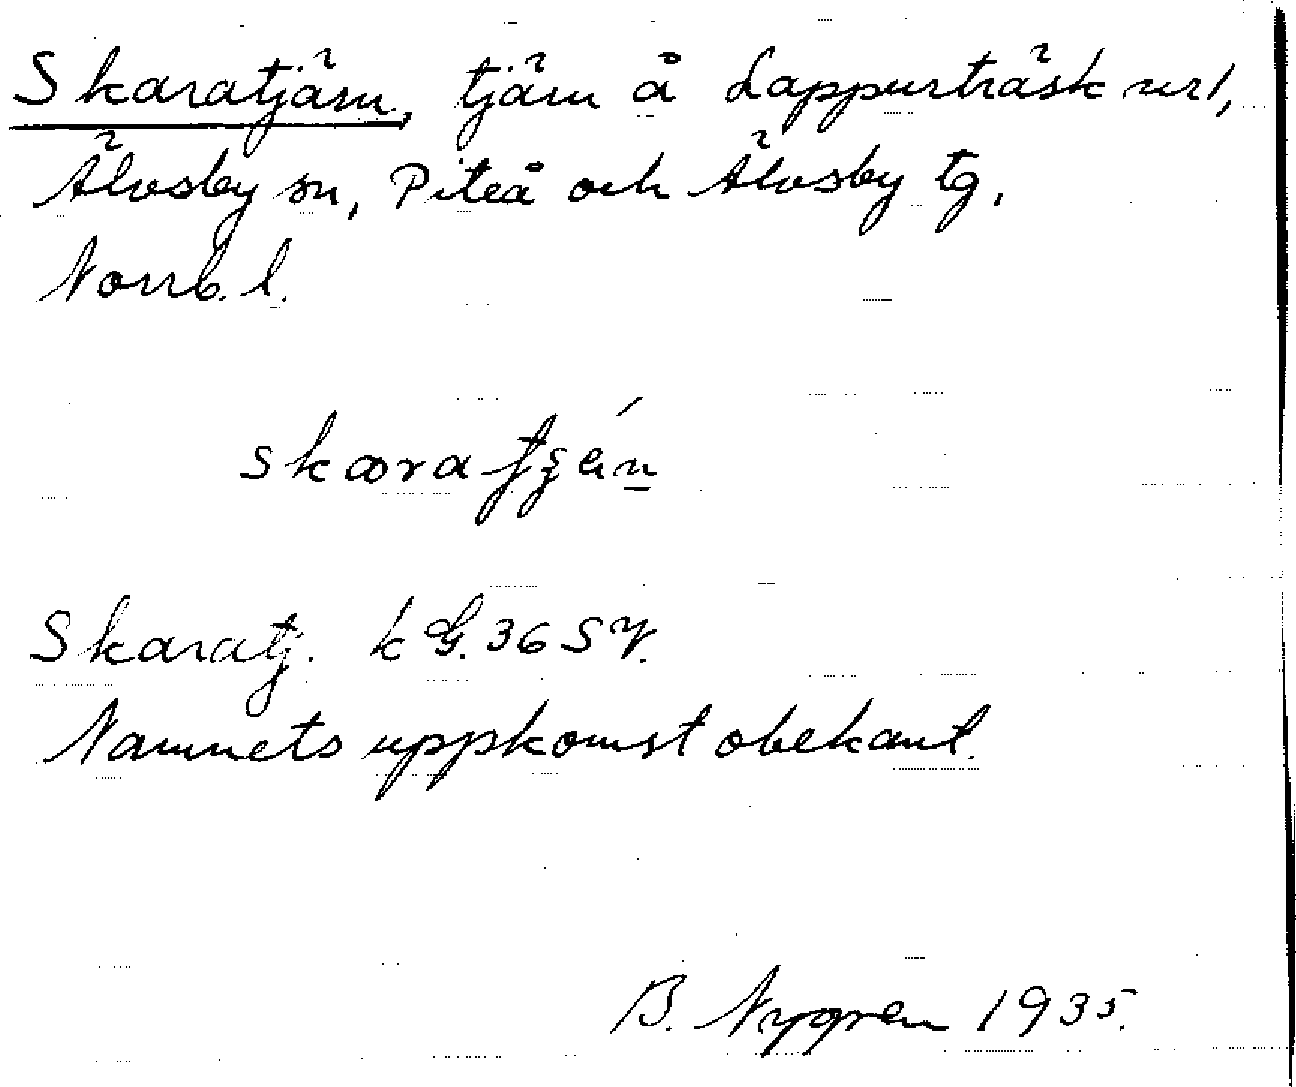 Skaratjärn, tjärn å Lappurträsk nr 1,
Älvsby sn, Piteå och Älvsby tg,
Norrb. l.
Skaratj. k G. 36 SV.
Namnets uppkomst obekant.
B. Nygren 1935.